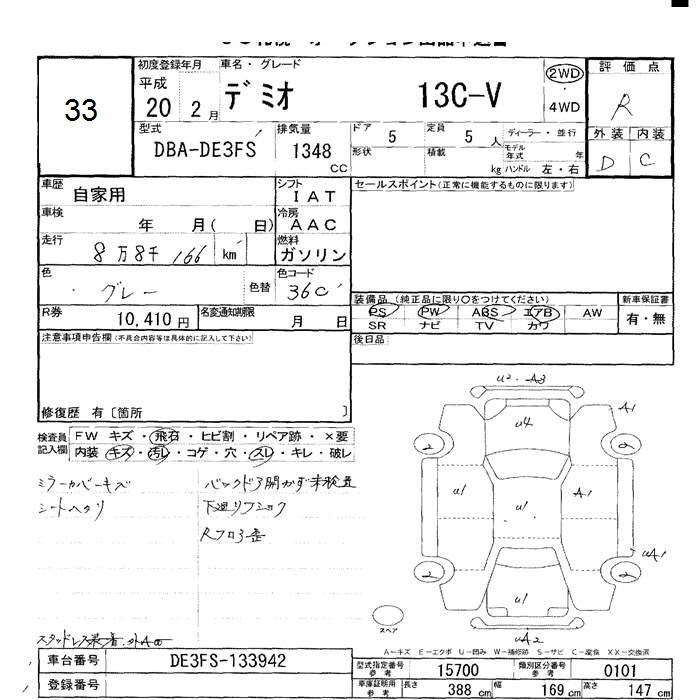 33
初度登録年月 車名・グレード
平成 20 2月 デミオ 13C-V 2WD ・ 4WD
評価点 R
型式 DBA-DE3FS
排気量 1348 CC
ドア 5 定員 5人
形状 積載 kg
ディーラー・並行
モデル年式 年
ハンドル 左・右
外装 内装
D C
車歴 自家用
シフト IAT
車検 年 月( 日)
冷房 AAC
走行 8万8千166 km
燃料 ガソリン
色 グレー 色替
色コード 36C
R券 10,410円
名変通知期限 月 日
セールスポイント(正常に機能するものに限ります)
装備品(純正品に限り○をつけてください)
PS PW ABS エアB AW
SR ナビ TV カワ
新車保証書
有・無
後日品
注意事項申告欄(不具合内容等は具体的に記入して下さい)
修復歴 有〔箇所 〕
検査員記入欄
FW キズ・飛石・ヒビ割・リペア跡・×要
内装 キズ・汚レ・コゲ・穴・スレ・キレ・破レ
ミラーカバーキズ
シートヘタリ
バックドア開かず未検査
下廻リフショク
スタッドレス装着
U2・A3
U4
A1
2
2
U1
U1
A1
UA1
2
2
U1
UA2
スペア
A-キズ E-エクボ U-凹み W-補修跡 S-サビ C-腐食 XX-交換済
車台番号 DE3FS-133942
登録番号
型式指定番号 参考 15700
類別区分番号 参考 0101
車庫証明用 参考 長さ 388 cm 幅 169 cm 高さ 147 cm